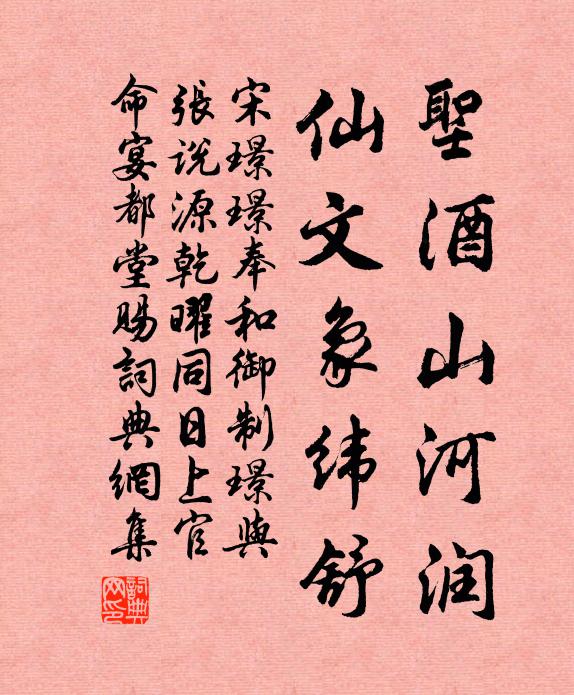 聖酒山河润
仙文象纬舒
宋璟璟奉和御制璟與
張说源乾曜同日上官
命宴都堂賜詞典網集
詞典网印